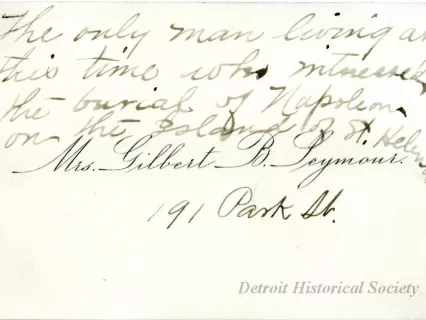 The only man living at
this time who witnessed
the burial of Napoleon
on the Island of St. Helena
Mrs. Gilbert B. Seymour.
191 Park St.
Detroit Historical Society